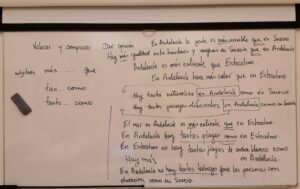 Valorar y comparar. Dar opinión
En Andalucía la gente es más amable que en Suecia
Hay más igualdad entre hombres y mujeres en Suecia que en Andalucía
Andalucía es más caliente que Estocolmo.
En Andalucía hace más calor que en Estocolmo
más ... que
tan ... como
tanto ... como
Hay tanta naturaleza en Andalucía como en Suecia
Hay tantos paisajes diferentes en Andalucía como en Suecia
El mar en Andalucía es más caliente que en Estocolmo
En Andalucía hay tantas playas como en Estocolmo
En Estocolmo no hay tantas playas de arena blanca como
Hay más en Andalucía.
En Andalucía no hay tantos trabajos para las personas con
como en Suecia